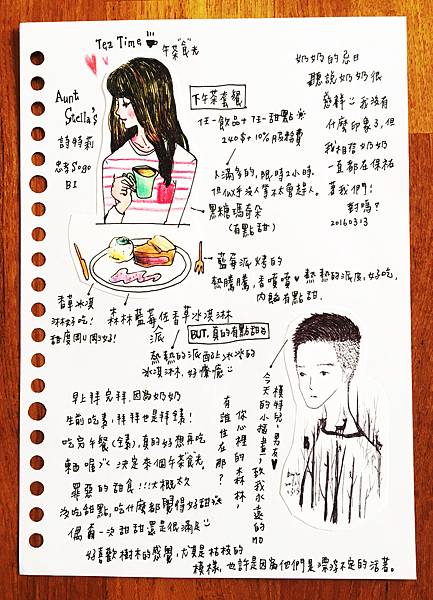 Tea Time
午茶"食"光
Aunt
Stella's
詩特莉
忠孝Sogo
B1
下午茶套餐
任一飲品+任一甜點
240$+10%服務費
人滿多的,限時2小時
但似乎沒人拿不會趕人。
黑糖瑪奇朵
(有點甜)
藍莓派 烤的
熱騰騰,香噴噴♥ 熱熱的派皮,好吃,
內餡有點甜.
香草冰淇
淋好吃!
甜度剛剛好!
森林藍莓佐香草冰淇淋
派
BUT.真的有點甜的
熱熱的派配上冰冰的
冰淇淋.好療癒
奶奶的忌日
聽說奶奶很
慈祥 我沒有
什麼印象了,但
我相信奶奶
一直都在保祐
著我們!
對嗎?
20160313
模特兒,男友♥
今天的小插畫,致我永遠的no
你心裡的森林,
有誰住在那?
早上拜完拜.因為奶奶
生前吃素,拜拜也是拜素!
吃完午餐(全素),真的好想再吃
東西喔 決定來個午茶"食"光
罪惡的甜食!!!大概太久
沒吃甜點,吃什麼都覺得好甜
偶有一次甜甜還是很滿足
好喜歡樹木的感覺,尤其是枯枝的
模樣,也許是因為他們是漂浮不定的活著。